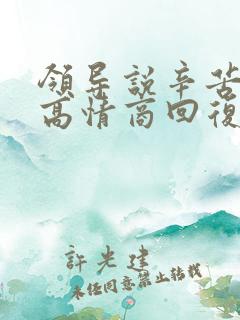 領导說辛苦
高情商回復
許光建
未经同意禁止转载